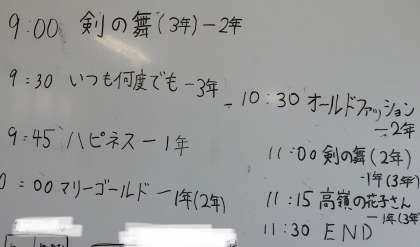 9:00 剣の舞(3年)－2年
9:30 いつも何度でも－3年
9:45 ハピネス－1年
0:00 マリーゴールド－1年(2年)
－10:30 オールドファッション
－2年
11:00 剣の舞(2年)
－1年(3年)
11:15 高嶺の花子さん
－1年(3年
11:30 END